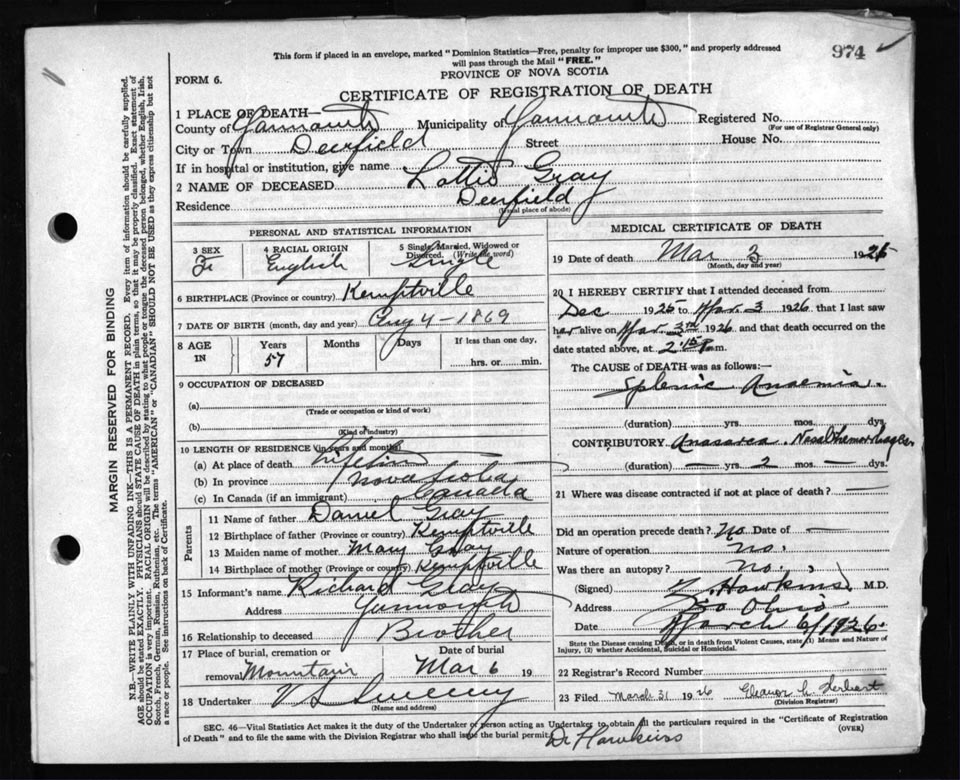 This form if placed in an envelope, marked "Dominion Statistics—Free, penalty for improper use $300," and properly addressed
will pass through the Mail "FREE."
974
PROVINCE OF NOVA SCOTIA
FORM 6.
CERTIFICATE OF REGISTRATION OF DEATH
1 PLACE OF DEATH—
County of Yarmouth Municipality of Yarmouth Registered No.
(For use of Registrar General only)
City or Town Deerfield Street House No.
If in hospital or institution, give name
2 NAME OF DECEASED Lottie Gray
Residence Deerfield
(Usual place of abode)
PERSONAL AND STATISTICAL INFORMATION
3 SEX 4 RACIAL ORIGIN 5 Single, Married, Widowed or
Divorced. (Write the word)
Fe English Single
6 BIRTHPLACE (Province or country) Kemptville
7 DATE OF BIRTH (month, day and year) Aug 4-1869
8 AGE IN Years Months Days If less than one day,
57 hrs. or min.
9 OCCUPATION OF DECEASED
(a)
(Trade or occupation or kind of work)
(b)
(Kind of industry)
10 LENGTH OF RESIDENCE (in years and months)
(a) At place of death Lifetime
(b) In province Nova Scotia
(c) In Canada (if an immigrant) Canada
Parents
11 Name of father Daniel Gray
12 Birthplace of father (Province or country) Kemptville
13 Maiden name of mother Mary Gray
14 Birthplace of mother (Province or country) Kemptville
15 Informant's name Richard Gray
Address Yarmouth
16 Relationship to deceased Brother
17 Place of burial, cremation or Date of burial
removal Mountain Mar 6 19
18 Undertaker V S Sweeny
(Name and address)
MEDICAL CERTIFICATE OF DEATH
19 Date of death Mar 3 1926
(Month, day and year)
20 I HEREBY CERTIFY that I attended deceased from
Dec 1925 to Mar. 3 1926 that I last saw
her alive on Mar 3rd 1926 and that death occurred on
date stated above, at 2.15 P.m.
The CAUSE of DEATH was as follows:—
Splenic Anaemia
(duration) yrs. mos. dys.
CONTRIBUTORY Anasarca Nasal hemorrhages
(duration) — yrs. 2 mos. dys.
21 Where was disease contracted if not at place of death?
Did an operation precede death? No Date of —
Nature of operation no.
Was there an autopsy? no.
(Signed) Z. Hawkins M.D.
Address So Ohio
Date March 6/1926.
State the Disease causing Death, or in death from Violent Causes, state (1) Means and Nature of
Injury, (2) whether Accidental, Suicidal or Homicidal.
22 Registrar's Record Number
23 Filed March 31 1926 Eleanor
(Division Registrar)
SEC. 46—Vital Statistics Act makes it the duty of the Undertaker or person acting as Undertaker to obtain all the particulars required in the "Certificate of Registration
of Death" and to file the same with the Division Registrar who shall issue the burial permit. (OVER)
Dr Hawkins
MARGIN RESERVED FOR BINDING
N.B.—WRITE PLAINLY WITH UNFADING INK—THIS IS A PERMANENT RECORD. Every item of information should be carefully supplied.
AGE should be stated EXACTLY. PHYSICIANS should STATE CAUSE OF DEATH in plain terms, so that it may be properly classified. Exact statement of
OCCUPATION is very important. RACIAL ORIGIN will be described by stating to what people or tongue the deceased person belonged, whether English, Irish,
Scotch, French, German, Russian, Ruthenian, etc. The terms "AMERICAN" or "CANADIAN" SHOULD NOT BE USED as they express citizenship but not
a race or people. See instructions on back of Certificate.